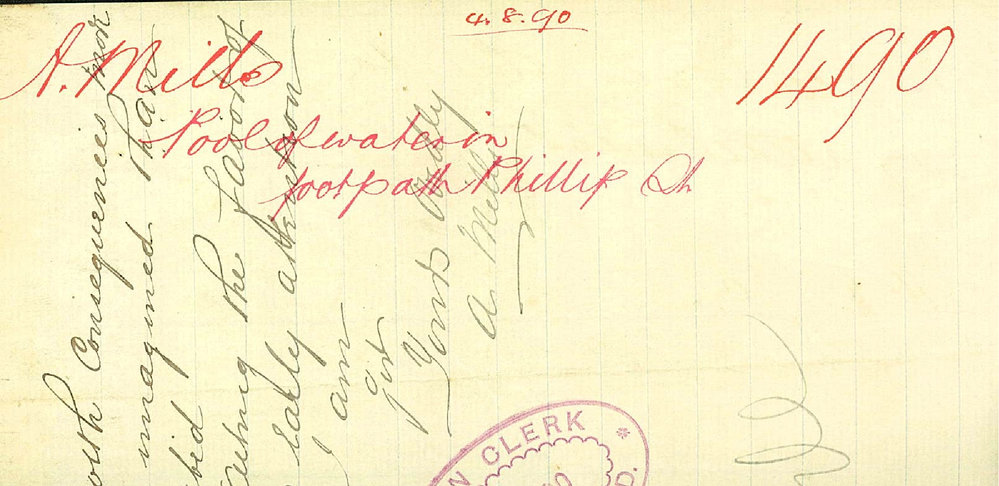 4.8.90
A. Mills
1490
Pool of water in
footpath Phillip St
with Consequences more
imagined than
the Favor of
early attention
I am
Sir
Yours
A. Mills
CLERK